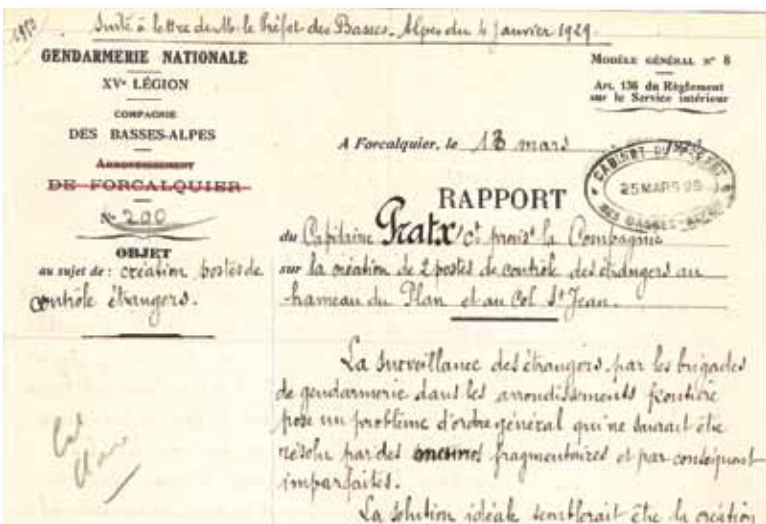 Suite à lettre de M. le Préfet des Basses-Alpes du 4 Janvier 1929
GENDARMERIE NATIONALE
XVe LÉGION
COMPAGNIE
DES BASSES-ALPES
ARRONDISSEMENT
DE FORCALQUIER
No 200
OBJET
au sujet de : création postes de
contrôle étrangers.
MODÈLE GÉNÉRAL No 8
Art. 136 du Règlement
sur le Service intérieur
A Forcalquier, le 13 mars
CABINET DU PRÉFET
25 MARS
DES BASSES-ALPES
RAPPORT
du Capitaine Gratx, Ct provist la Compagnie
sur la création de 2 postes de contrôle des étrangers au
hameau du Plan et au Col St Jean.
La surveillance des étrangers par les brigades
de gendarmerie dans les arrondissements frontière
pose un problème d'ordre général qui ne saurait être
résolu par des mesures fragmentaires et par conséquent
imparfaites.
La solution idéale semblerait être la création